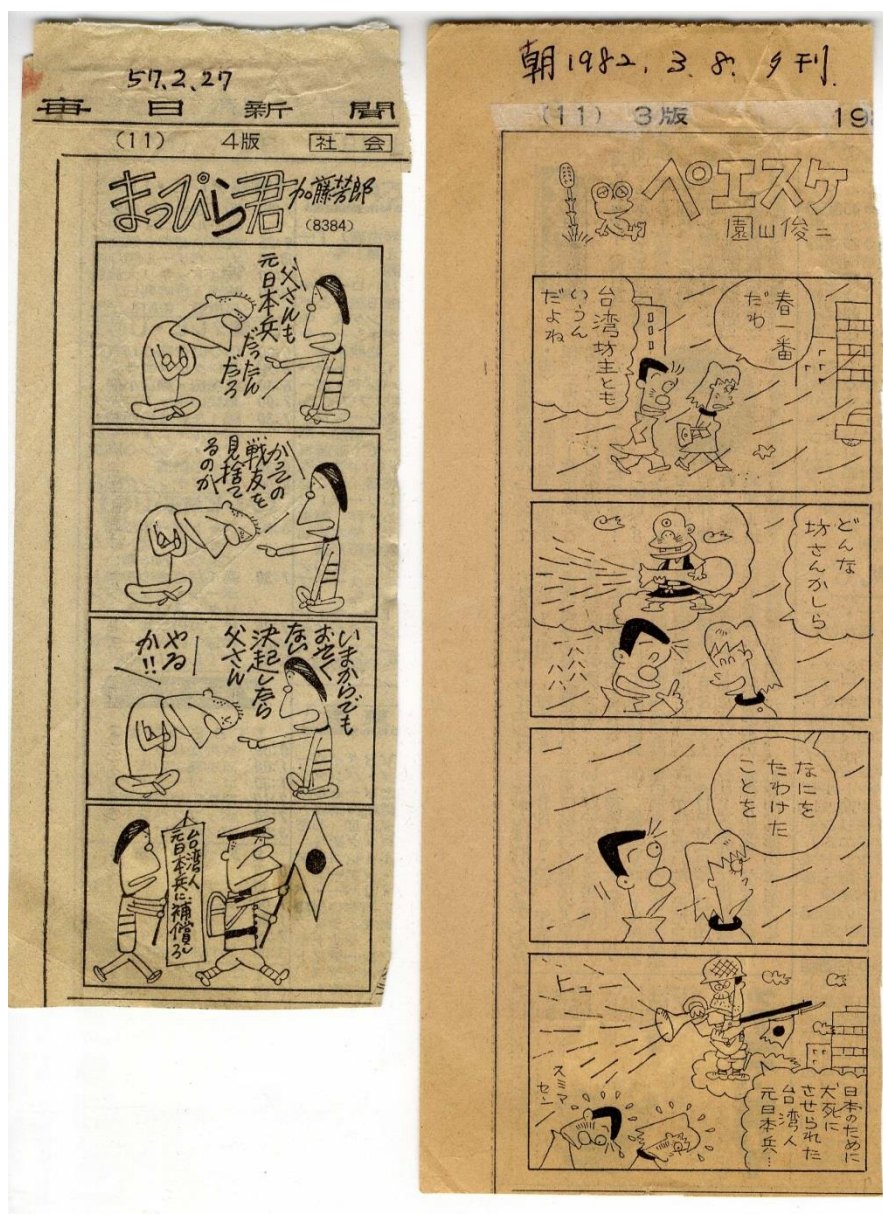 57.2.27
毎日新聞
(11) 4版 社会
まっぴら君
加藤芳郎
(8384)
父さんも
元日本兵
だったん
だろ
かっての
戦友を
見捨て
るのか
いまからでも
おそく
ない
決起したら
父さん
やる
か!!
台湾人
元日本兵に
補償しろ
朝1982.3.8.夕刊.
(11) 3版 198
ペエスケ
園山俊二
春一番
だわ
台湾坊主とも
いうん
だよね
どんな
坊さんかしら
ハハハ
ハハ
なにを
たわけた
ことを
ヒュー
スミマ
セン
日本のために
犬死に
させられた
台湾人
元日本兵…